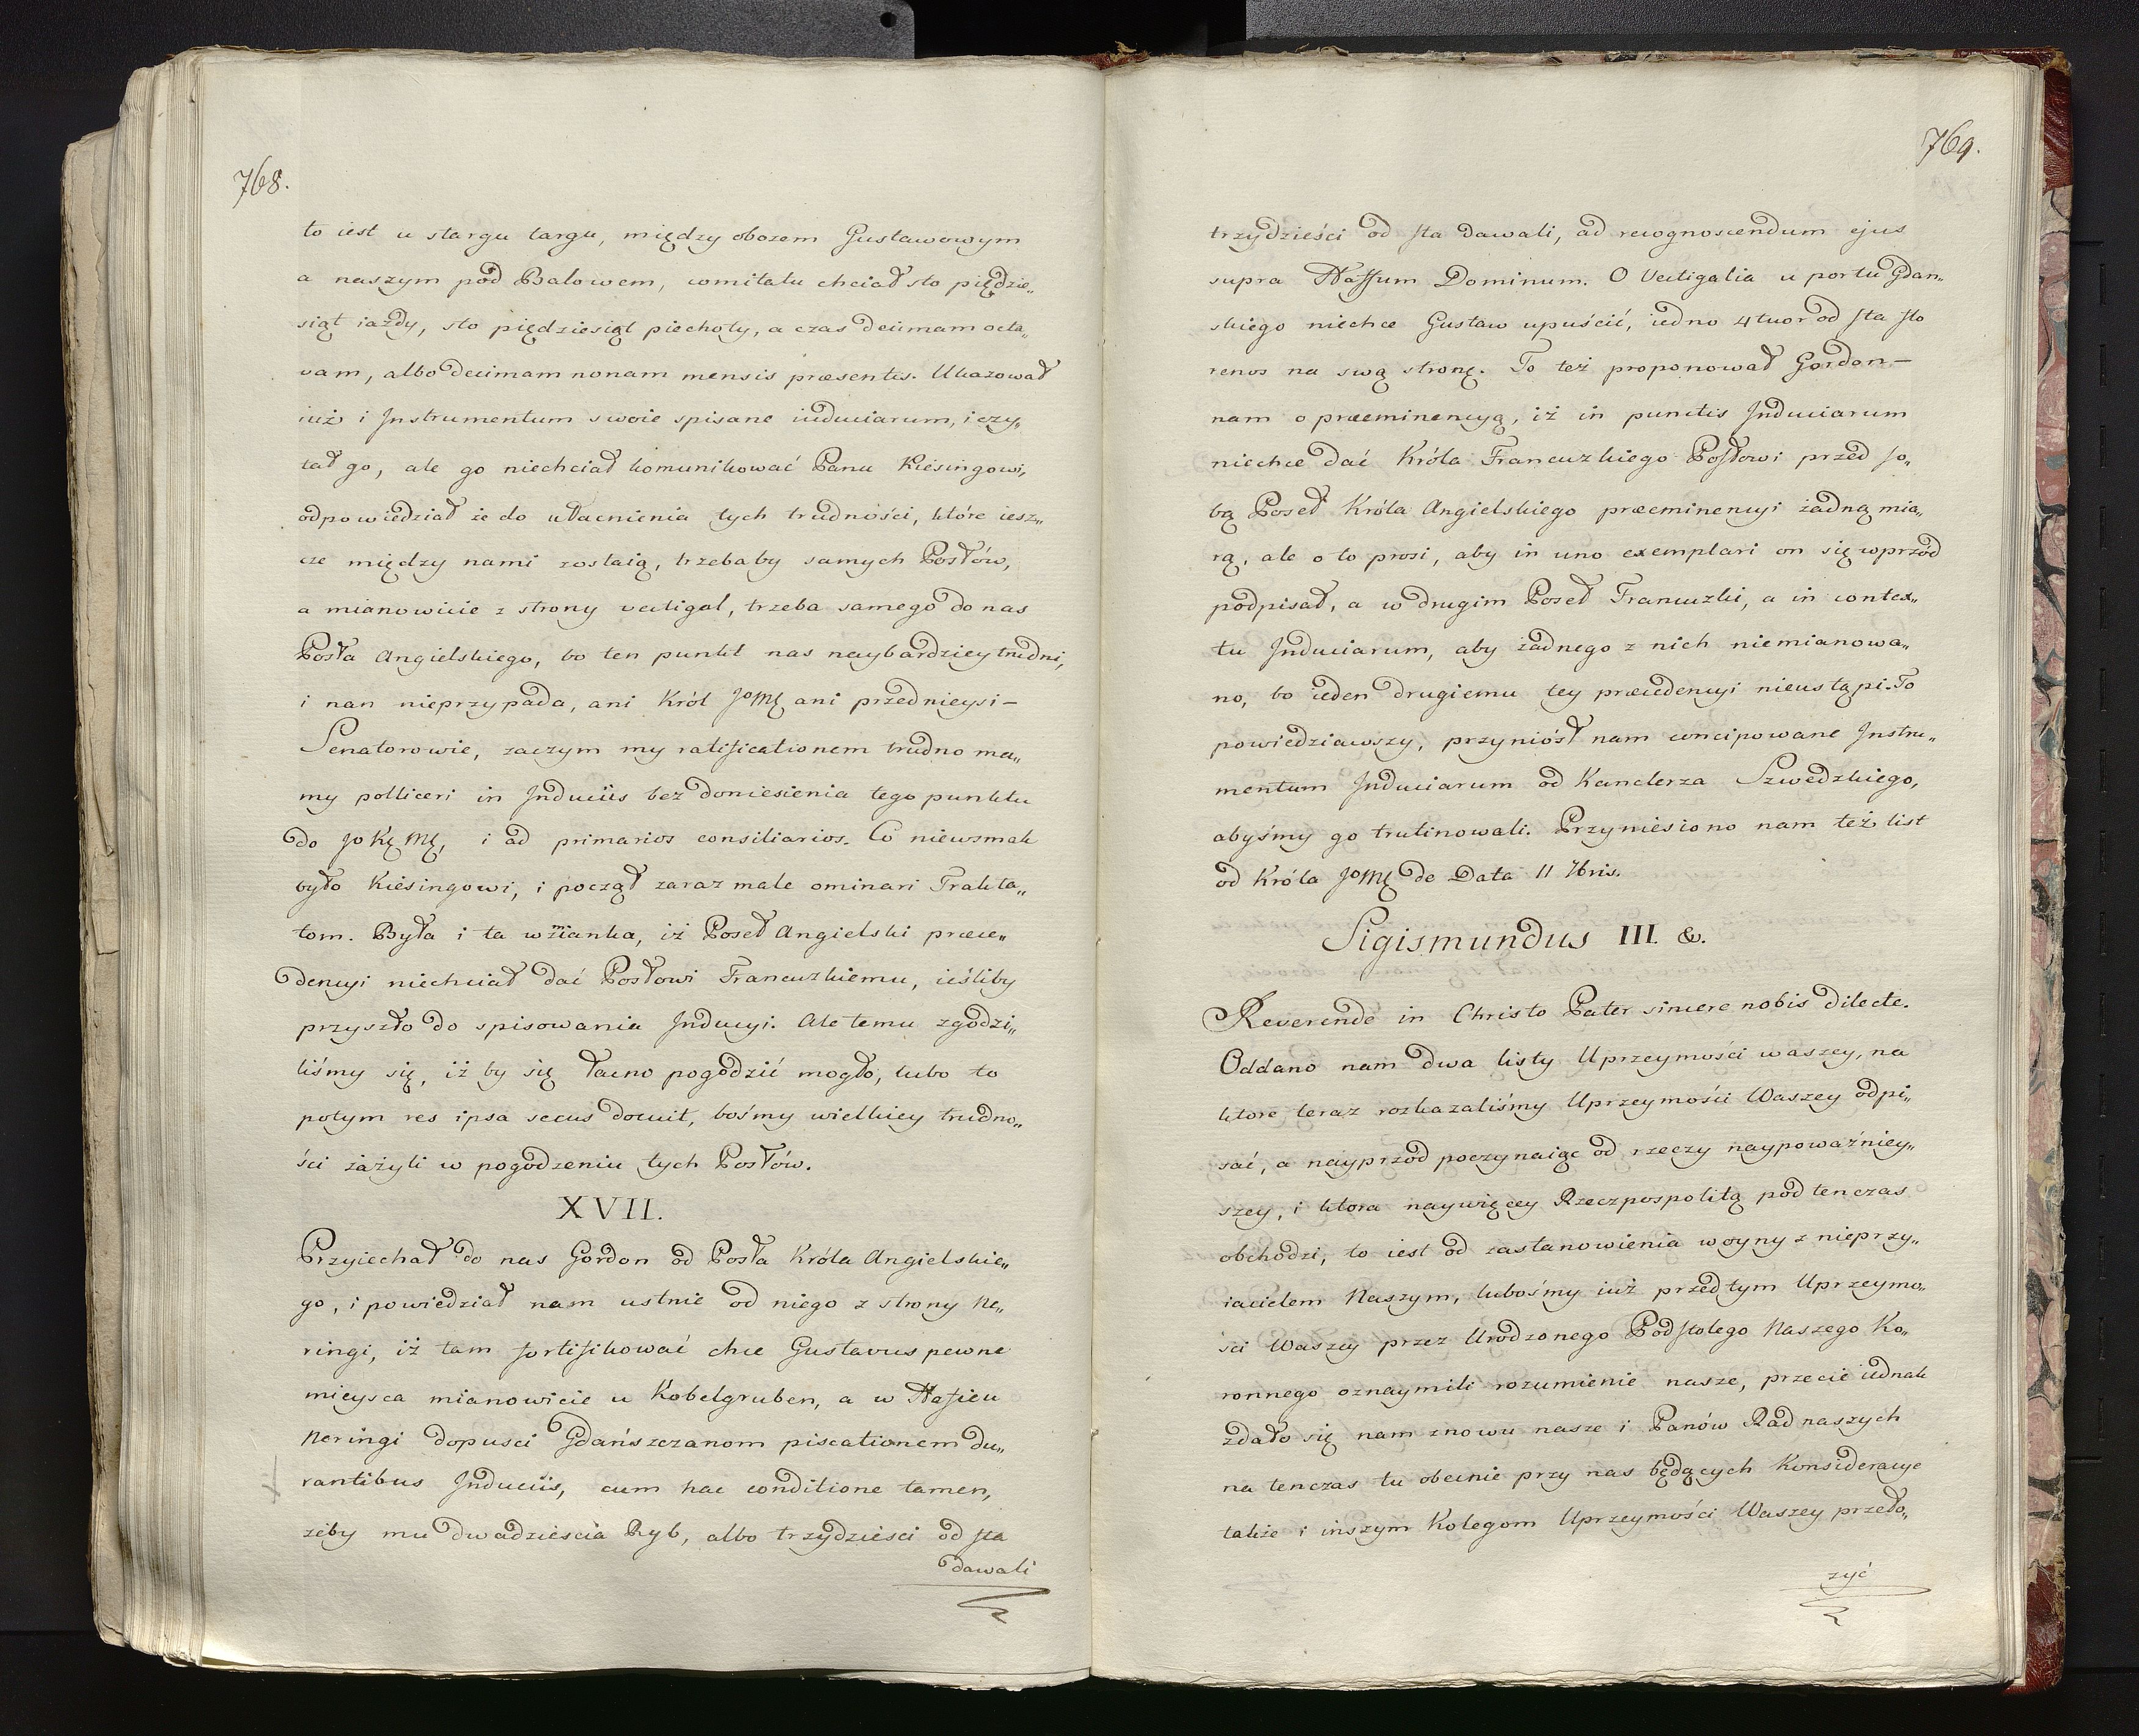 768.
to iest u stargu targu, między obozem Gustawowym
a naszym pod Balowem, comitatu chciał sto pięćdzie„
siąt iazdy, sto pięcdziesiąt piechoty, a czas decimam octa„
vam, albo decimam nonam mensis præsentis. Ukazował
iuż i Instrumentum swoie spisane induciarum, i czy„
tał go, ale go niechciał komunikować Panu Kiesingowi,
odpowiedział że do ułacnienia tych trudności, które iesz„
cze między nami zostaią, trzebaby samych Posłów,
a mianowicie z strony vectigal, trzeba samego do nas
Posła Angielskiego, bo ten punkt nas naybardziey trudni,
i nan nieprzypada, ani Król JoMć ani przednieysi –
Senatorowie, zaczym my ratificationem trudno ma„
my polliceri in Induciis bez doniesienia tego punktu
do Jo Kć Mć, i ad primarios consiliarios. Co niewsmak
było Kiesingowi, i począł zaraz male ominari Trakta„
tom. Była i ta wzmianka, iż Poseł Angielski præce„
dencyi niechciał dać Posłowi Francuzkiemu, ieśliby
przyszło do spisowania Inducyi. Ale temu zgodzi„
liśmy się, iż by się łacno pogodzić mogło, lubo to
potym res ipsa secus docuit, bośmy wielkiey trudno„
ści zażyli w pogodzeniu tych Posłów.
XVII.
Przyiechał do nas Gordon od Posła Króla Angielskie„
go, i powiedział nam ustnie od niego z strony Ne„
ringi, iż tam fortifikować chce Gustavus pewne
mieysca mianowicie u Kobelgruben, a w
Neringi dopusci Gdańszczanom piscationem du„
rantibus Induciis, cum hac conditione tamen,
żeby mu dwadziescia Ryb, albo trzydziesci od sta
dawali
769.
trzydzieści od sta dawali, ad recognoscendum ejus
supra Dominum. O Vectigalia u portu Gdan„
skiego niechce Gustaw upuścić, iedno 4tuor od sta flo
renos na swą stronę. To też proponował Gordon –
nam o præeminencyą, iż in punctis Induciarum
niechce dać Króla Francuzkiego Posłowi przed so„
bą Poseł Króla Angielskiego præeminencyi żadną mia„
rą, ale o to prosi, aby in uno exemplari on się wprzód
podpisał, a w drugim Poseł Francuzki, a in contex„
tu Induciarum, aby żadnego z nich niemianowa„
no, bo ieden drugiemu tey præcedencyi nieustąpi. To
powiedziawszy, przyniósł nam concipowane Instru„
mentum Induciarum od Kanclerza Szwedzkiego,
abyśmy go trutinowali. Przyniesiono nam też list
od Króla JoMć de Data 11 7bris.
Sigismundus III. &.
Reverende in Christo Pater sincere nobis dilecte.
Oddano nam dwa listy Uprzeymości waszey, na
ktore teraz rozkazaliśmy Uprzeymości Waszey odpi„
sać, a nayprzod poczynaiąc od rzeczy naypoważniey„
szey, i ktora naywięcey Rzeczpospolitą pod ten czas
obchodzi, to iest od zastanowienia woyny z nieprzy„
iacielem Naszym, lubośmy iuż przed tym Uprzeymo„
ści Waszey przez Urodzonego Podstolego Naszego Ko„
ronnego oznaymili rozumienie nasze, przecie iednak
zdało się nam znowu nasze i Panów Rad naszych
na tenczas tu obecnie przy nas będących Konsideracye
także i inszym Kolegom Uprzeymości Waszey przeło„
zyć